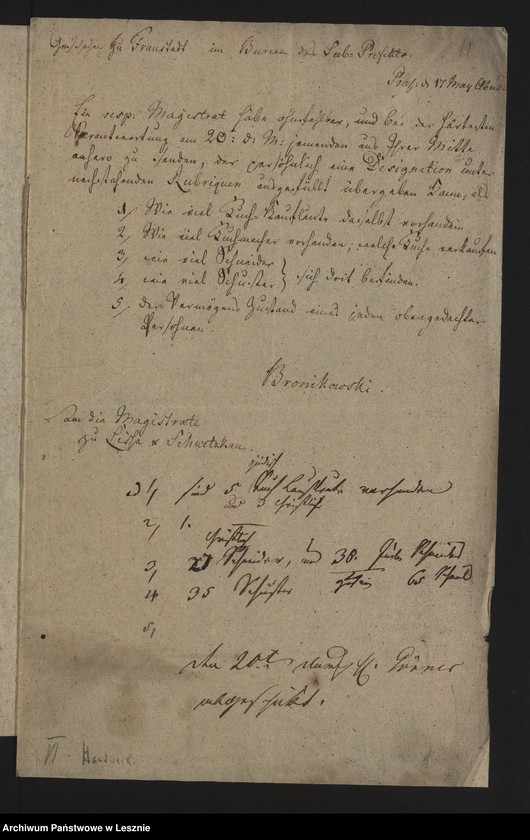 Geschehen zu Fraustadt im Bureau des Sub Prefekts.
Präs. d 17 May Abend
Ein resp. Magistrat habe ohnfehlbar, und bei der härtesten
Verantwortung am 20t d. M. jemanden aus Ihrer Mitte
anhero zu senden, der persöhnlich eine Designation unter
nachstehenden Rubriquen ausgefüllt übergeben kann, als
1, Wie viel Tuch Kaufleute daselbst vorhanden
2, Wie viel Tuchmacher vorhanden, welche Tuche verkaufen
3, wie viel Schneider
4, wie viel Schuster } sich dort befinden.
5, der Vermögens Zustand eines jeden obengedachter
Persohnen.
Bronikowski.
An die Magistrate
zu Lissa & Schwetzkau
jüdisch
ad 1, sind 5 Tuch Kaufleute vorhanden
und 3 christlich
2, 1.
christlich
3, 27 Schneider, und 38. Jüd. Schneid
4 35 Schuster 65
5,
den 20t durch H.
abgeschickt.
VI
Archiwum Państwowe w Lesznie